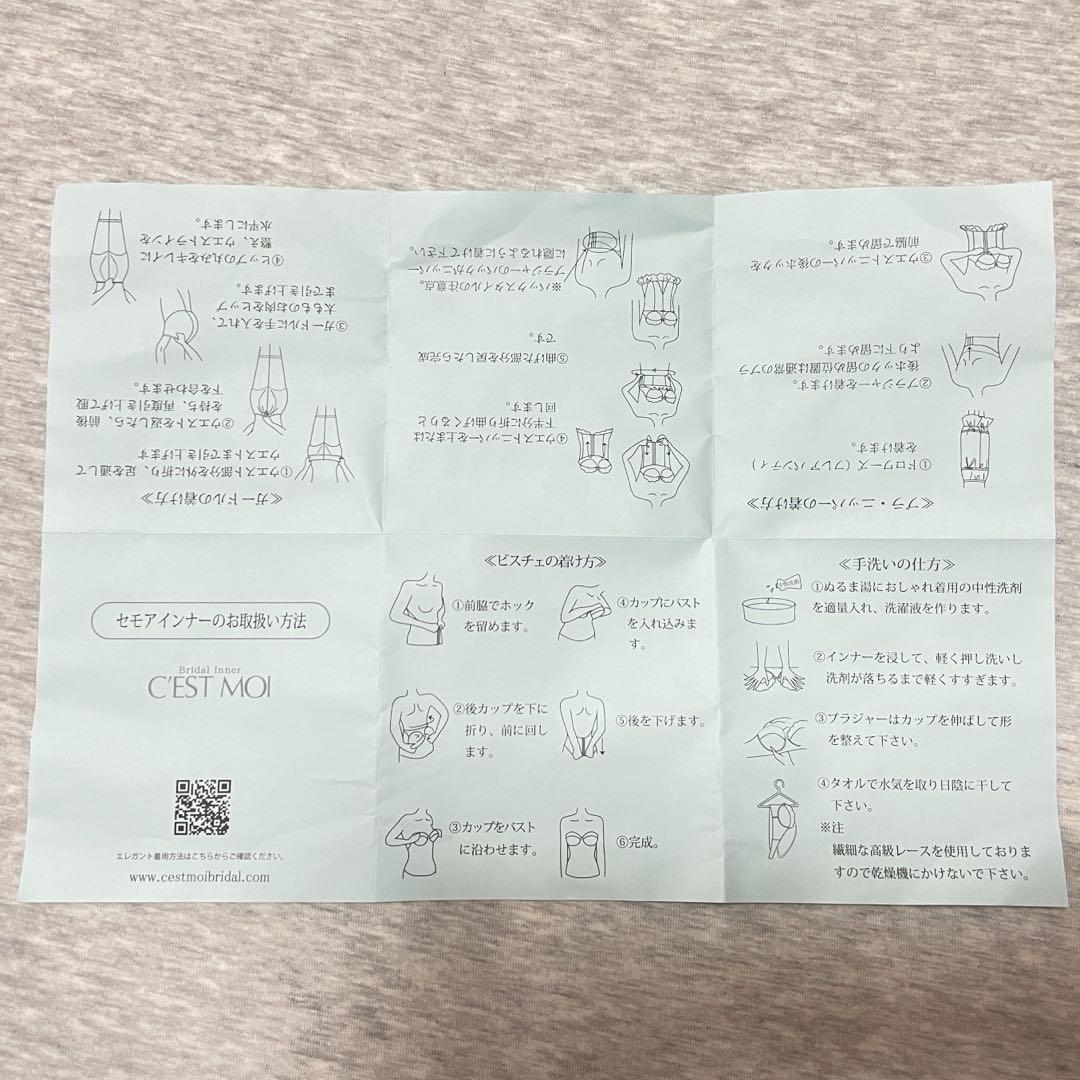 セモアインナーのお取扱い方法
Bridal Inner
C'EST MOI
エレガント着用方法はこちらからご確認ください。
www.cestmoibridal.com
≪ビスチェの着け方≫
①前脇でホック
を留めます。
②後カップを下に
折り、前に回し
ます。
③カップをバスト
に沿わせます。
④カップにバスト
を入れ込みま
す。
⑤後を下げます。
⑥完成。
≪手洗いの仕方≫
中性洗剤
①ぬるま湯におしゃれ着用の中性洗剤
を適量入れ、洗濯液を作ります。
②インナーを浸して、軽く押し洗いし
洗剤が落ちるまで軽くすすぎます。
③ブラジャーはカップを伸ばして形
を整えて下さい。
④タオルで水気を取り日陰に干して
下さい。
※注
繊細な高級レースを使用しておりま
すので乾燥機にかけないで下さい。
≪ブラ・ニッパーの着け方≫
①ドロワーズ（フレアパンティ）
を着けます。
②ブラジャーを着けます。
後ホックの留め位置は通常のブラ
より下に留めます。
③ウエストニッパーの後ホックを
前脇で留めます。
④ウエストニッパーを上または
下半分に折り曲げくるりと
回します。
⑤曲げた部分を戻したら完成
です。
※バックスタイルの注意点。
ブラジャーのバックがニッパー
に隠れるように着けて下さい。
≪ガードルの着け方≫
①ウエスト部分を外に折り、足を通して
ウエストまで引き上げます
②ウエストを返したら、前後
を持ち、再度引き上げて股
下を合わせます。
③ガードルに手を入れて、
太もものお肉をヒップ
まで引き上げます。
④ヒップの丸みをキレイに
整え、ウエストラインを
水平にします。